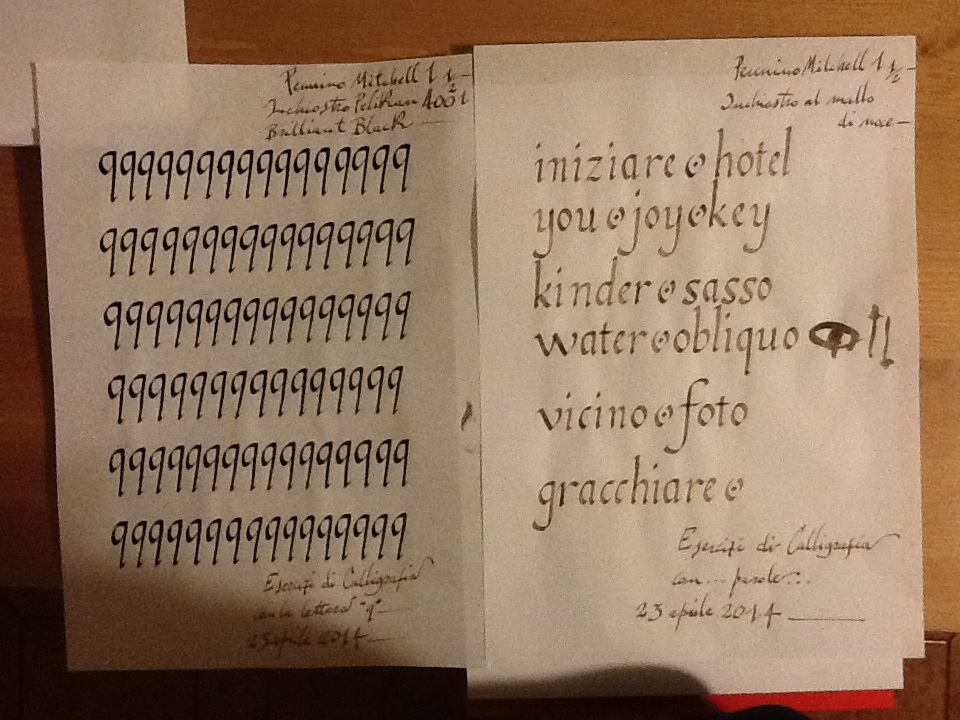 Pennino Mitchell 1 1/2 –
Inchiostro Pelikan 4001
Brilliant Black —
qqqqqqqqqqqqqqqq
qqqqqqqqqqqqqqqq
qqqqqqqqqqqqqqq
qqqqqqqqqqqqqqq
qqqqqqqqqqqqqqq
qqqqqqqqqqqqqqqq
Esercizi di Calligrafia
con la lettera "q" —
23 aprile 2014 —
Pennino Mitchell 1 1/2 –
Inchiostro al mallo
di noce –
iniziare hotel
you joy key
kinder sasso
water obliquo
vicino foto
gracchiare
Esercizi di Calligrafia
con... parole...
23 aprile 2014 —